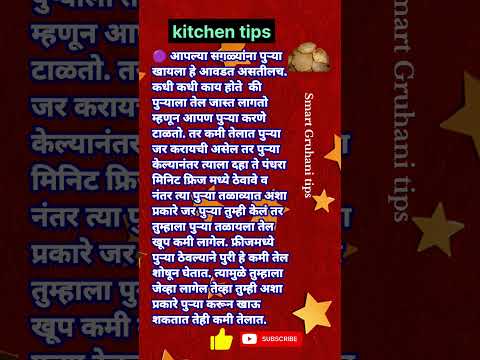 kitchen tips
🟣 आपल्या सगळ्यांना पुऱ्या
खायला हे आवडत असतीलच.
कधी कधी काय होते की
पुऱ्याला तेल जास्त लागतो
म्हणून आपण पुऱ्या करणे
टाळतो. तर कमी तेलात पुऱ्या
जर करायची असेल तर पुऱ्या
केल्यानंतर त्याला दहा ते पंधरा
मिनिट फ्रिज मध्ये ठेवावे व
नंतर त्या पुऱ्या तळाव्यात अशा
प्रकारे जर पुऱ्या तुम्ही केले तर
तुम्हाला पुऱ्या तळायला तेल
खूप कमी लागेल. फ्रीजमध्ये
पुऱ्या ठेवल्याने पुरी हे कमी तेल
शोषून घेतात. त्यामुळे तुम्हाला
जेव्हा लागेल तेव्हा तुम्ही अशा
प्रकारे पुऱ्या करून खाऊ
शकतात तेही कमी तेलात.
Smart Gruhani tips
SUBSCRIBE